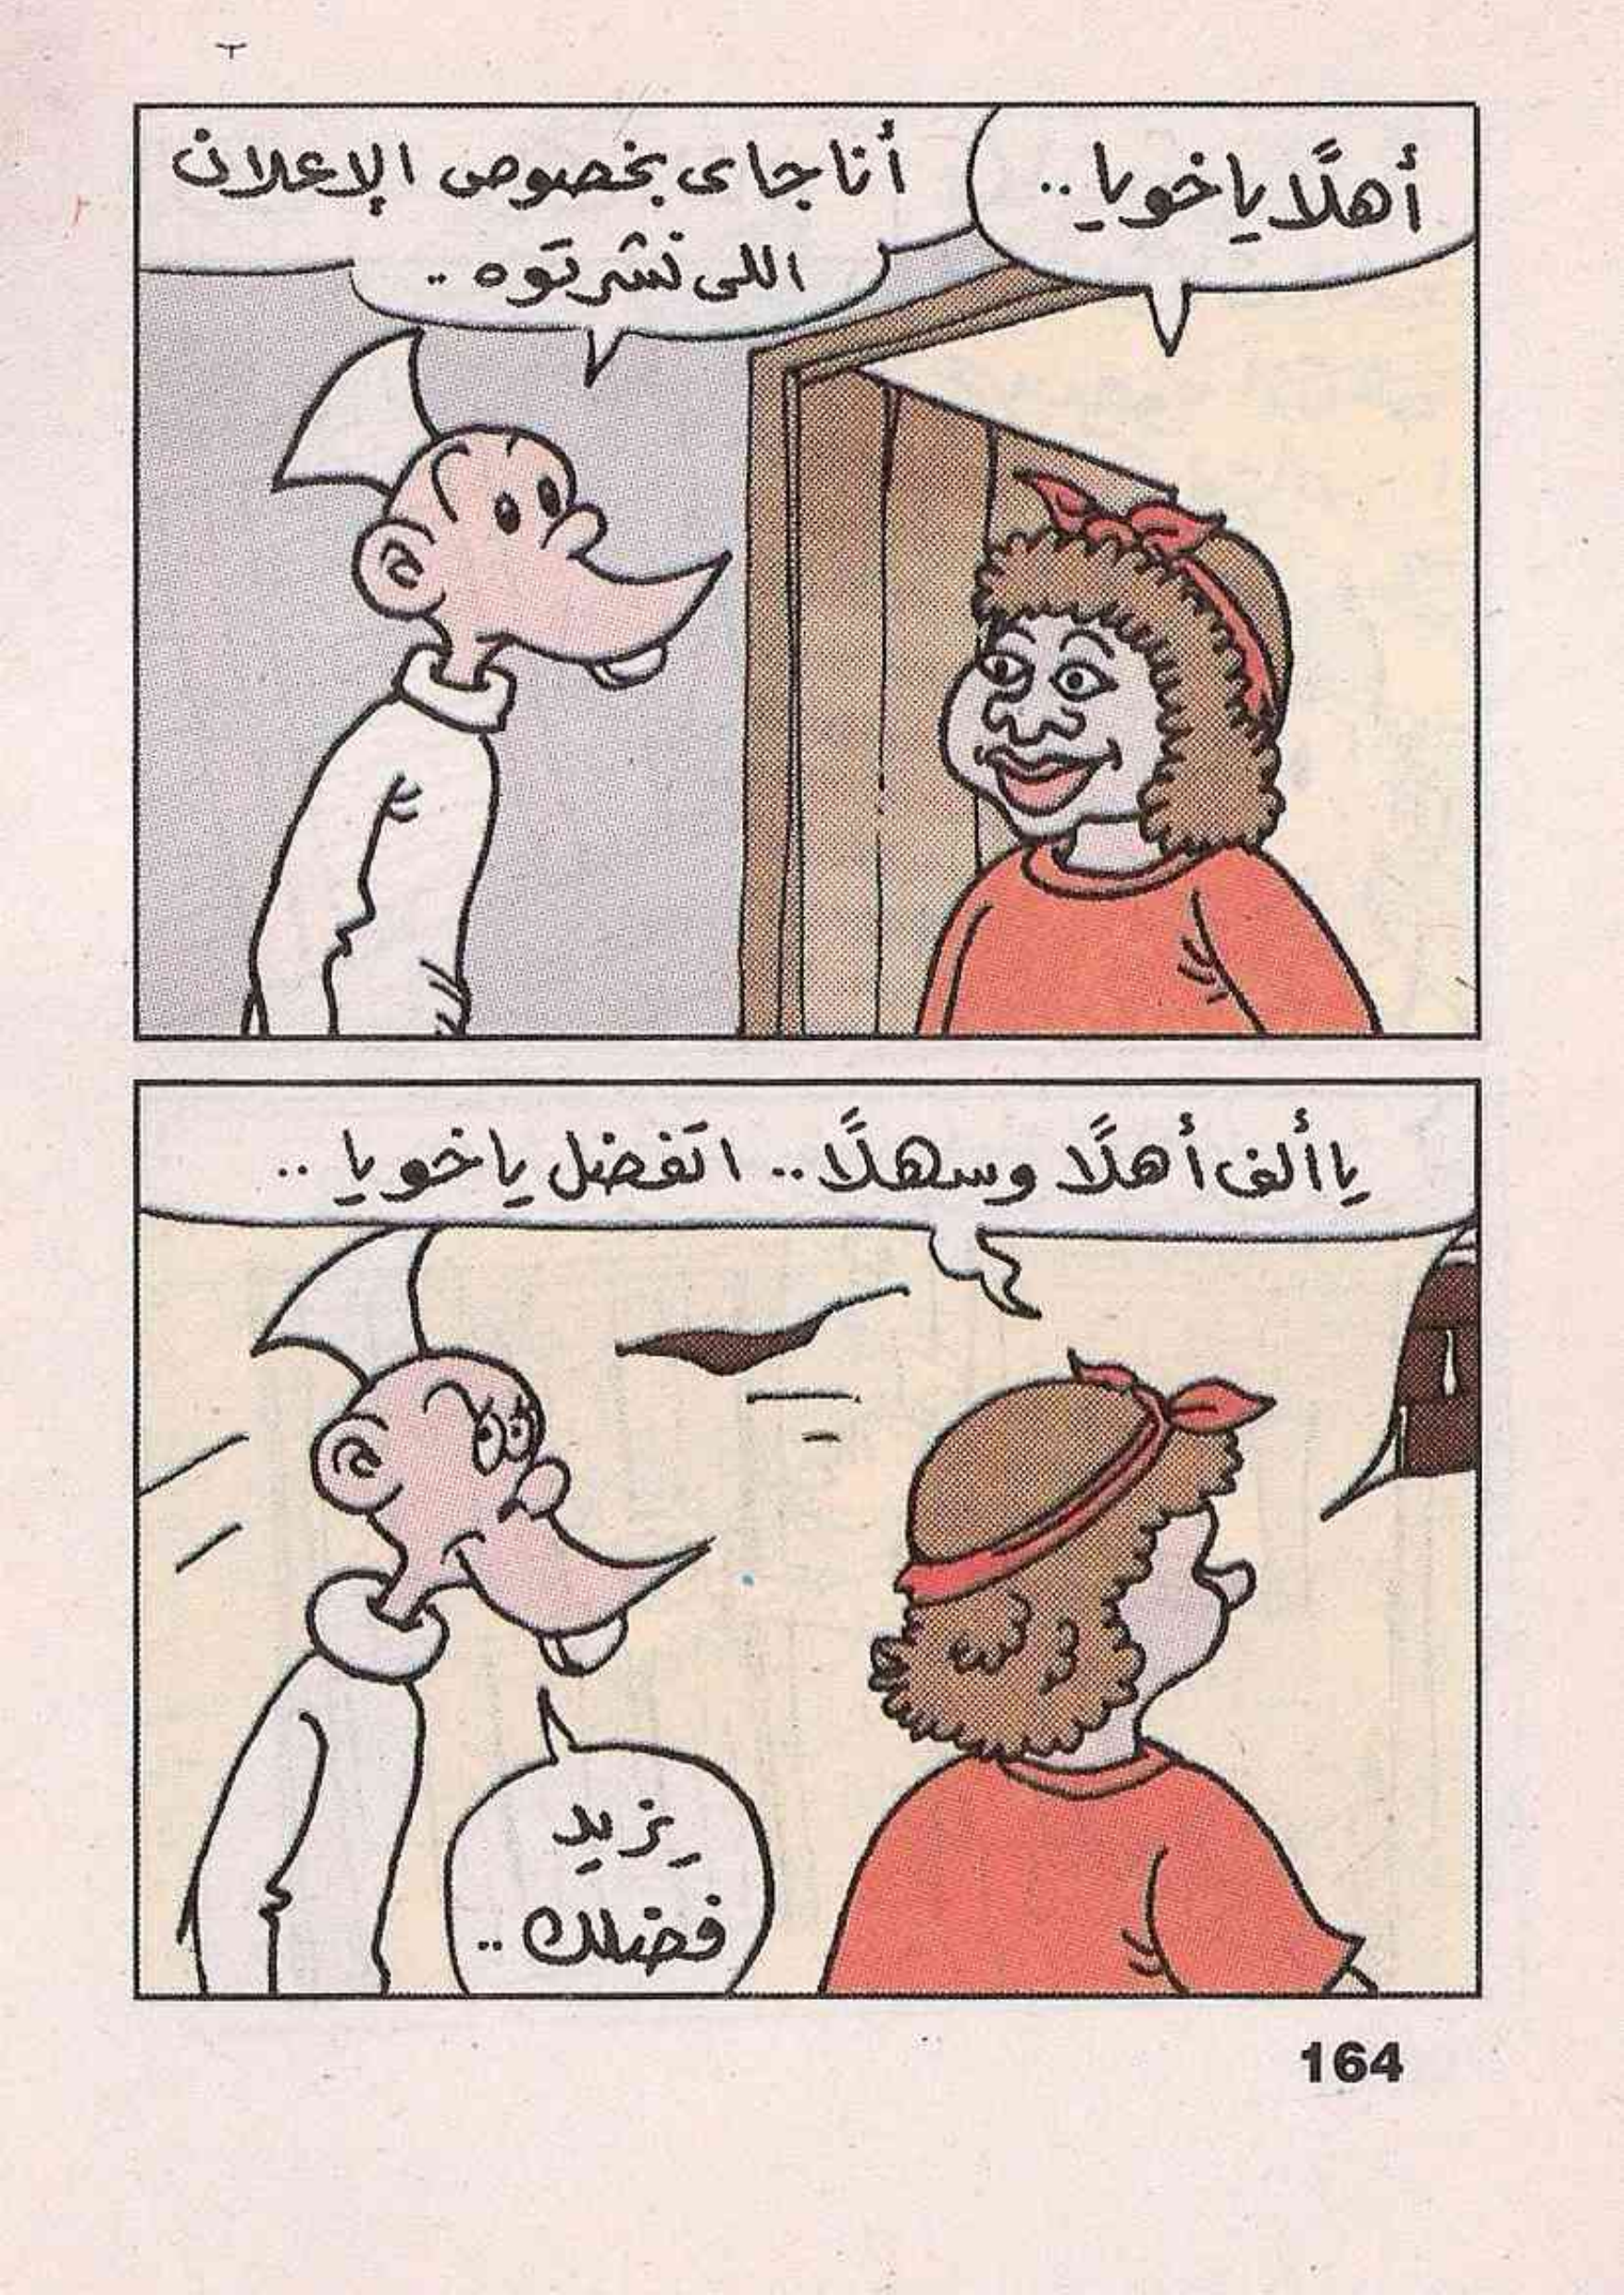 أهلًا ياخويا..
أنا جاى بخصوص الإعلان
اللى نشرتوه..
يا ألف أهلًا وسهلًا.. اتفضل ياخويا..
يزيد
فضلك..
164